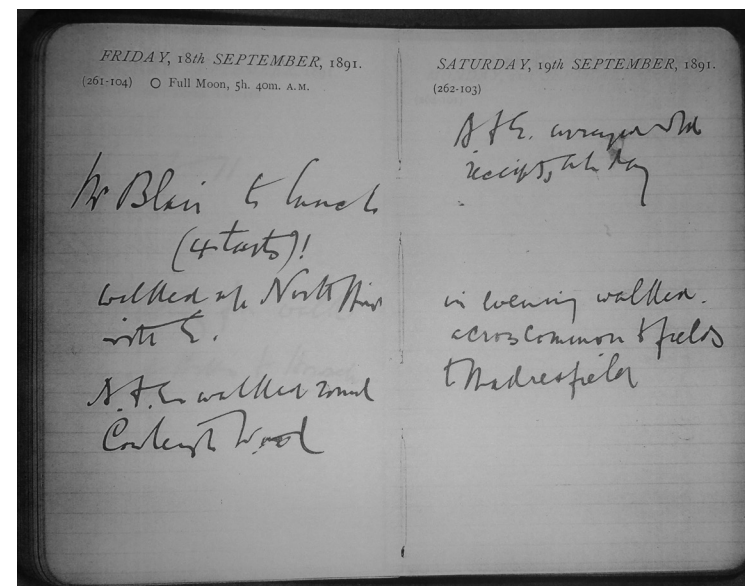 FRIDAY, 18th SEPTEMBER, 1891.
(261-104) O Full Moon, 5h. 40m. A.M.
Mr Blair to lunch
(4 tarts)!
walked up North Hill
with E.
A. & E. walked round
Cowleigh Wood
SATURDAY, 19th SEPTEMBER, 1891.
(262-103)
A & E. arranged old
receipts, all day
in evening walked.
across common & fields
to Madresfield